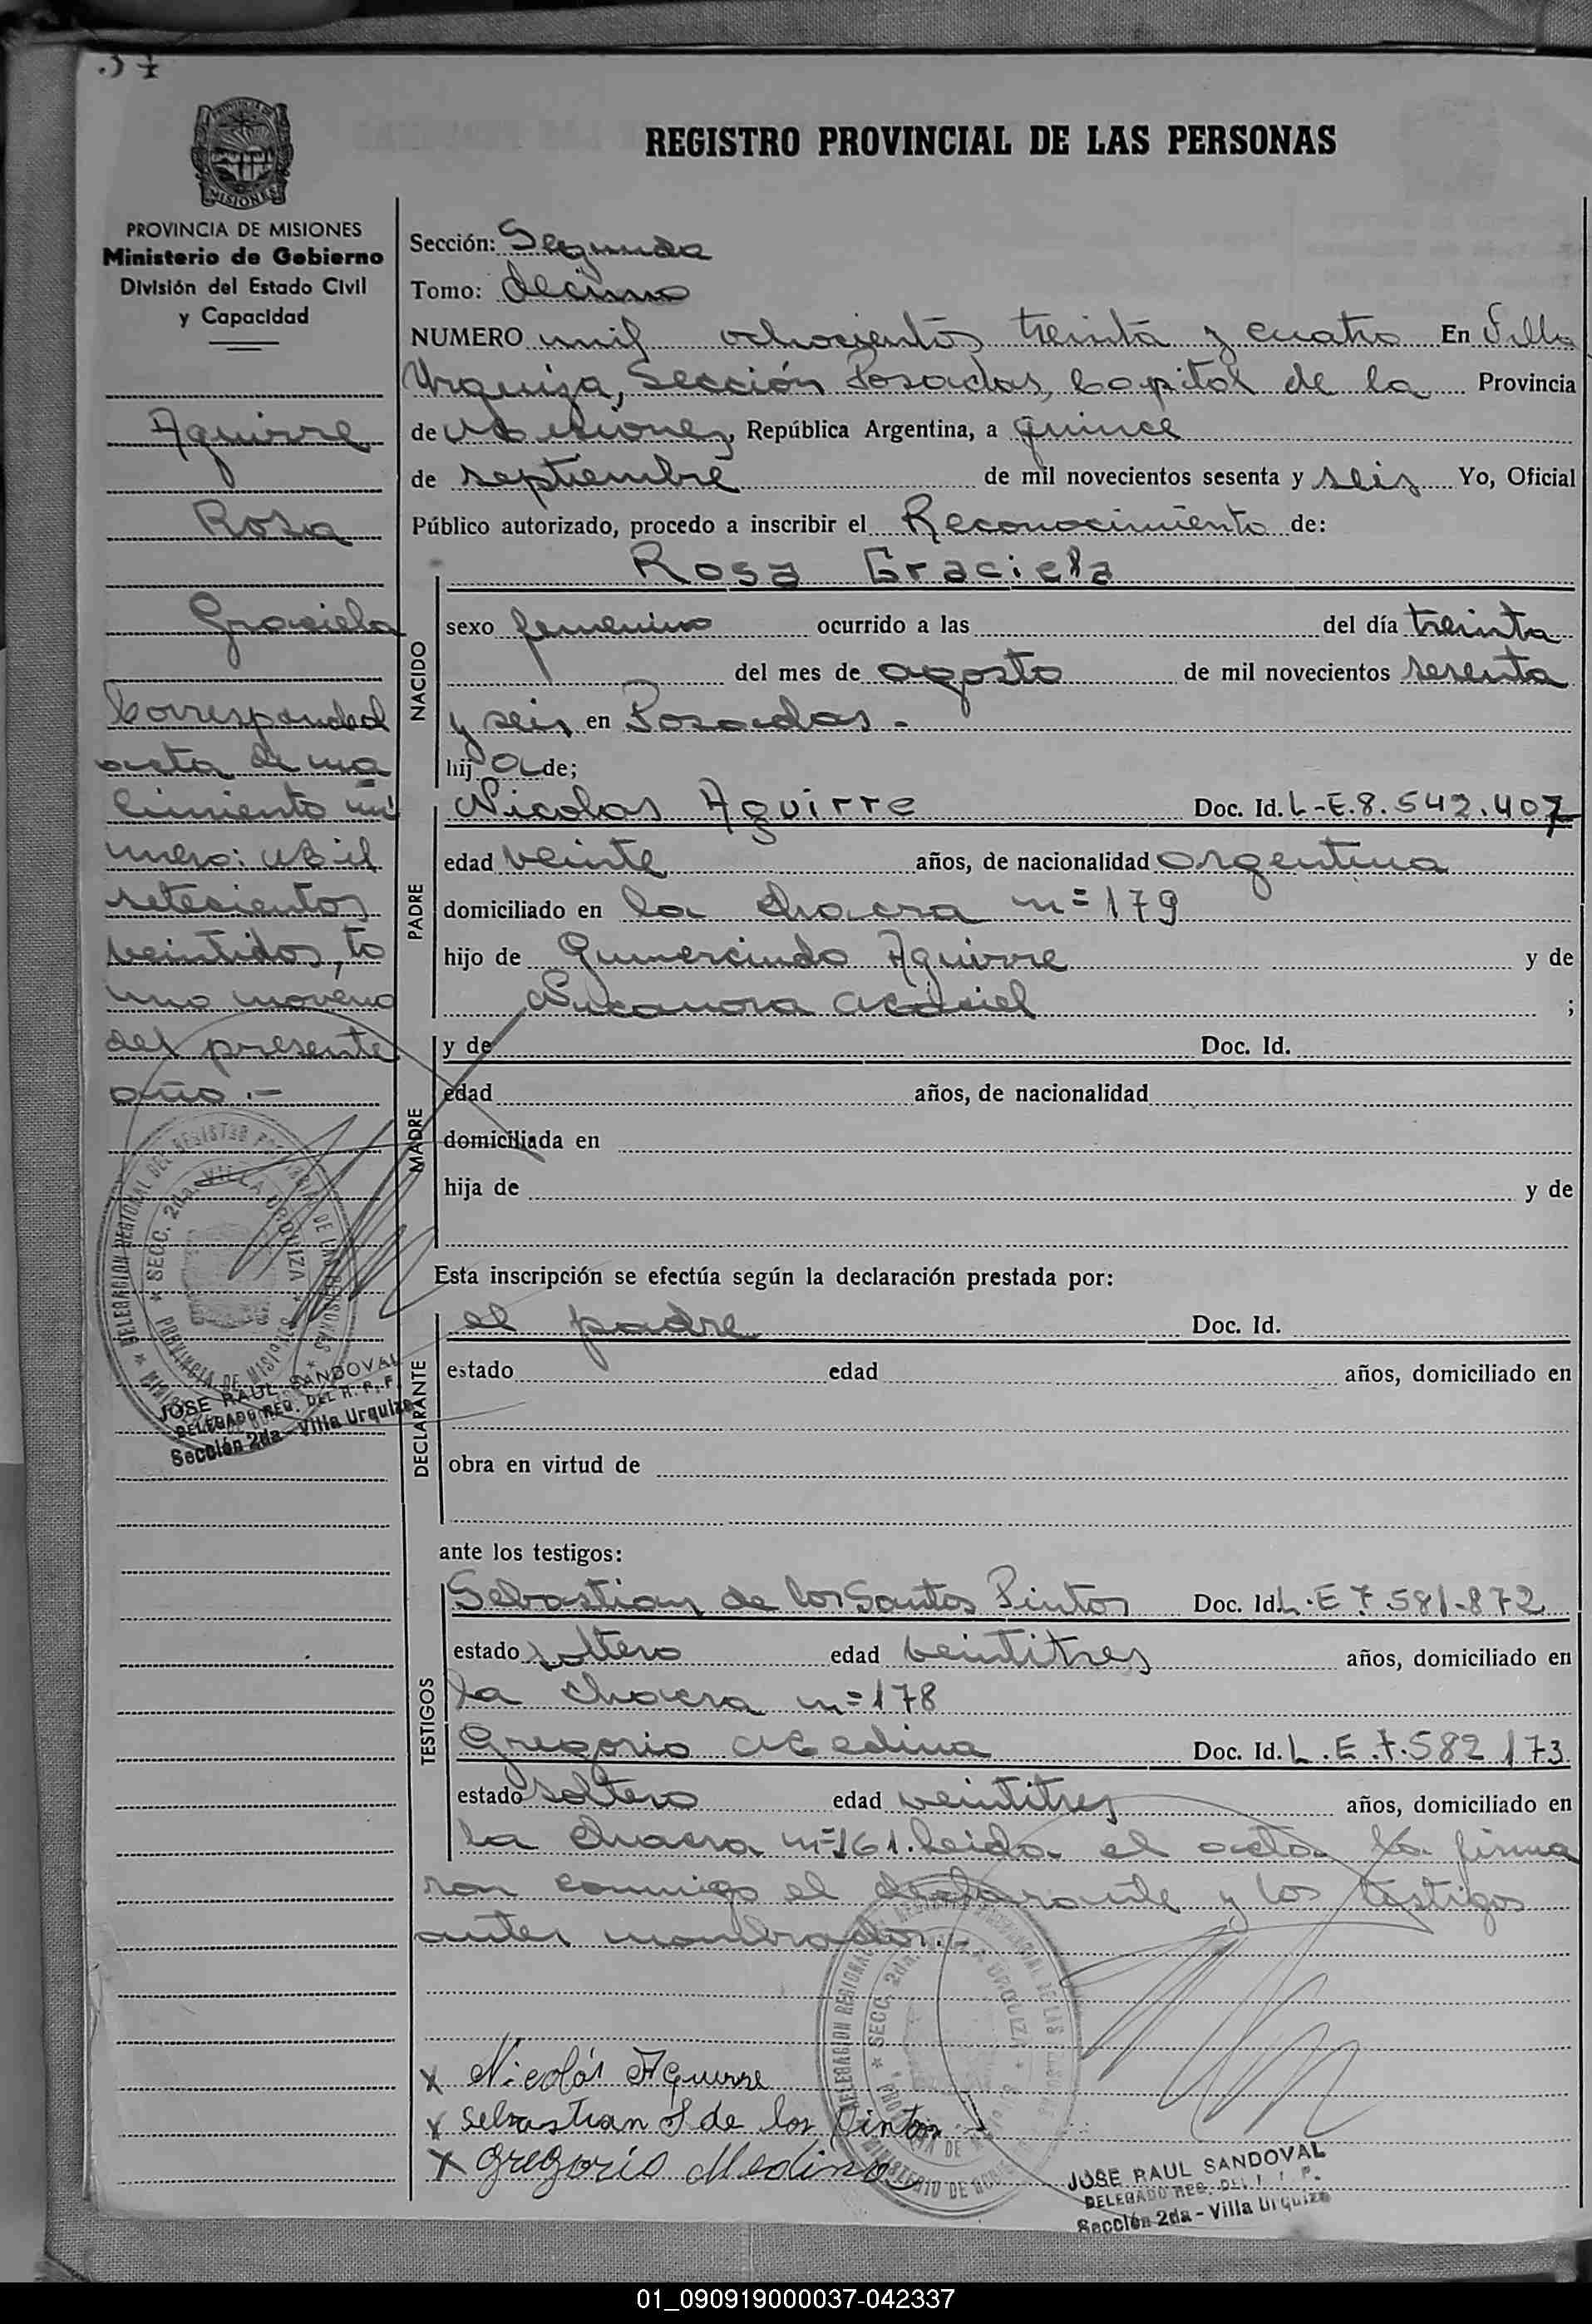 37
MISIONES
PROVINCIA DE MISIONES
Ministerio de Gobierno
División del Estado Civil
y Capacidad
Aguirre
Rosa
Graciela
Corresponde al
acta de na
cimiento nú
mero: Mil
setecientos
veintidos, to
mo noveno
del presente
año.-
DELEGACION REGIONAL DEL REGISTRO PROVINCIAL DE LAS PERSONAS
SECC. 2da. VILLA URQUIZA
PROVINCIA DE MISIONES
JOSE RAUL SANDOVAL
DELEGADO REG. DEL R. P. P.
Sección 2da - Villa Urquiza
REGISTRO PROVINCIAL DE LAS PERSONAS
Sección: Segunda
Tomo: decimo
NUMERO mil ochocientos treinta y cuatro En Villa
Urquiza, Sección Posadas, Capital de la Provincia
de Misiones, República Argentina, a quince
de septiembre de mil novecientos sesenta y seis Yo, Oficial
Público autorizado, procedo a inscribir el Reconocimiento de:
Rosa Graciela
NACIDO
sexo femenino ocurrido a las del día treinta
del mes de agosto de mil novecientos sesenta
y seis en Posadas.-
hij a de;
PADRE
Nicolas Aguirre Doc. Id. L-E.8.542.407
edad veinte años, de nacionalidad argentina
domiciliado en la chacra nº 179
hijo de Gumercindo Aguirre y de
Nicanora Maciel ;
MADRE
y de Doc. Id.
edad años, de nacionalidad
domiciliada en
hija de y de
Esta inscripción se efectúa según la declaración prestada por:
DECLARANTE
el padre Doc. Id.
estado edad años, domiciliado en
obra en virtud de
ante los testigos:
TESTIGOS
Sebastian de los Santos Pintos Doc. Id. L.E 7.581.872
estado soltero edad veintitres años, domiciliado en
la chacra nº 178
Gregorio Medina Doc. Id. L.E.7.582.173
estado soltero edad veintitres años, domiciliado en
la chacra nº 161. Leida el acta la firma
ron conmigo el declarante y los testigos
antes nombrados.-
DELEGACION REGIONAL REGISTRO PROVINCIAL DE LAS PERSONAS
SECC. 2da. URQUIZA
x Nicolás Aguirre
x Sebastian S de los Pintos
x Gregorio Medina
JOSE RAUL SANDOVAL
DELEGADO REG. DEL
Sección 2da - Villa Urquiza
01_090919000037-042337